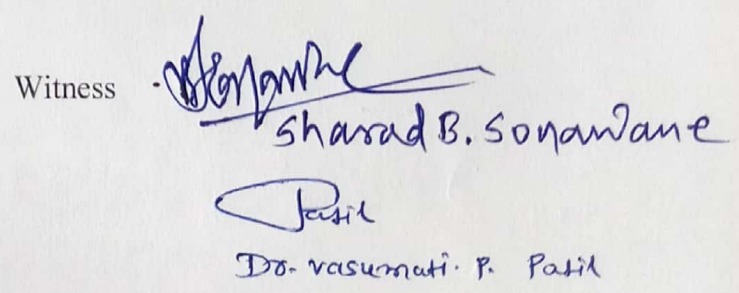 Witness - Sonawane
Sharad B. Sonawane
Patil
Dr. Vasumati. P. Patil